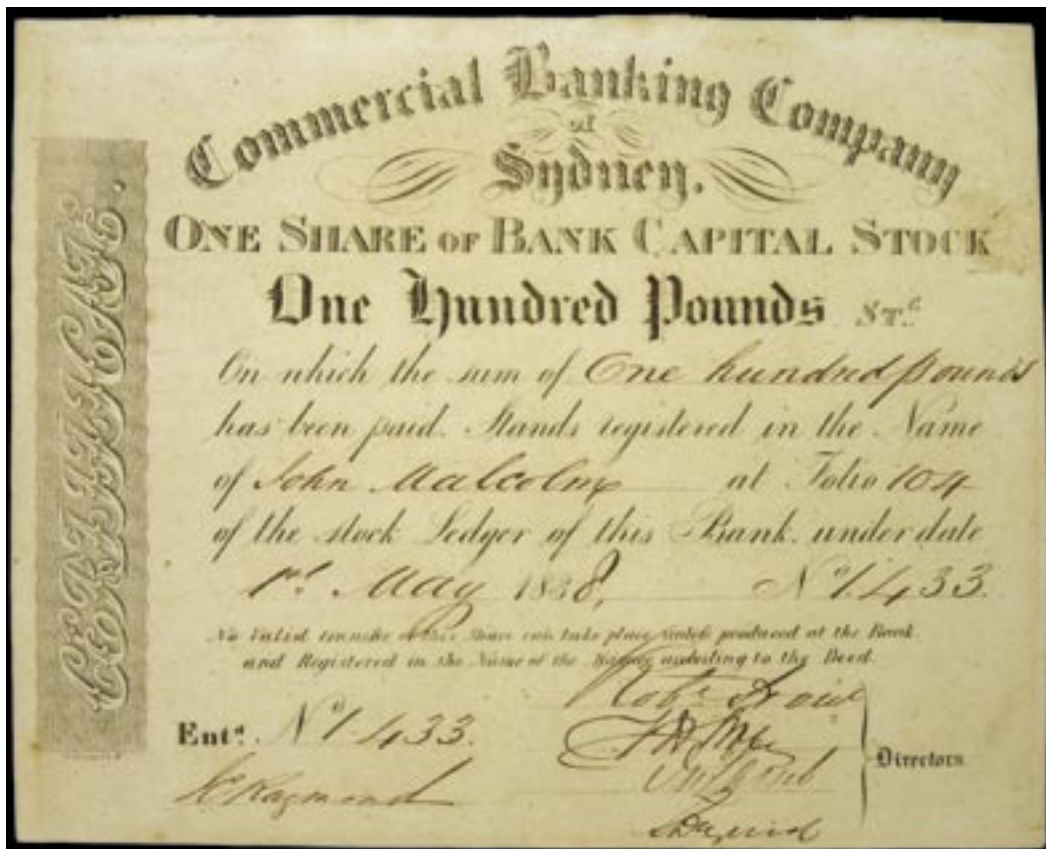 CERTIFICATE.
Commercial Banking Company
of
Sydney.
ONE SHARE OF BANK CAPITAL STOCK
One Hundred Pounds ST.G
On which the sum of One hundred pounds
has been paid. Stands registered in the Name
of John Malcolm at Folio 104
of the stock Ledger of this Bank. under date
1st May 1838, No 1.433.
No Valid transfer of this Share can take place unless produced at the Bank
and Registered in the Name of the according to the Deed.
Entd. No 1.433.
Directors
Raymond